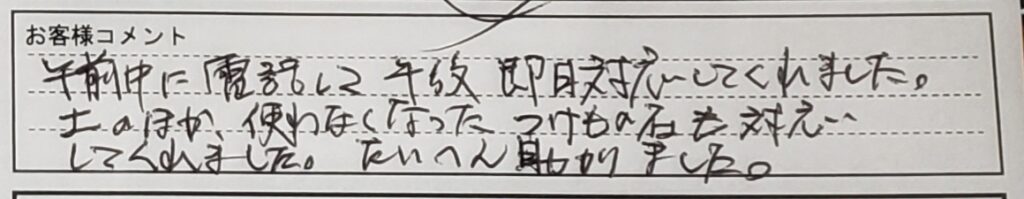 お客様コメント
午前中に電話して午後 即日対応してくれました。
土のほか、使わなくなった つけもの石も対応
してくれました。たいへん助かりました。